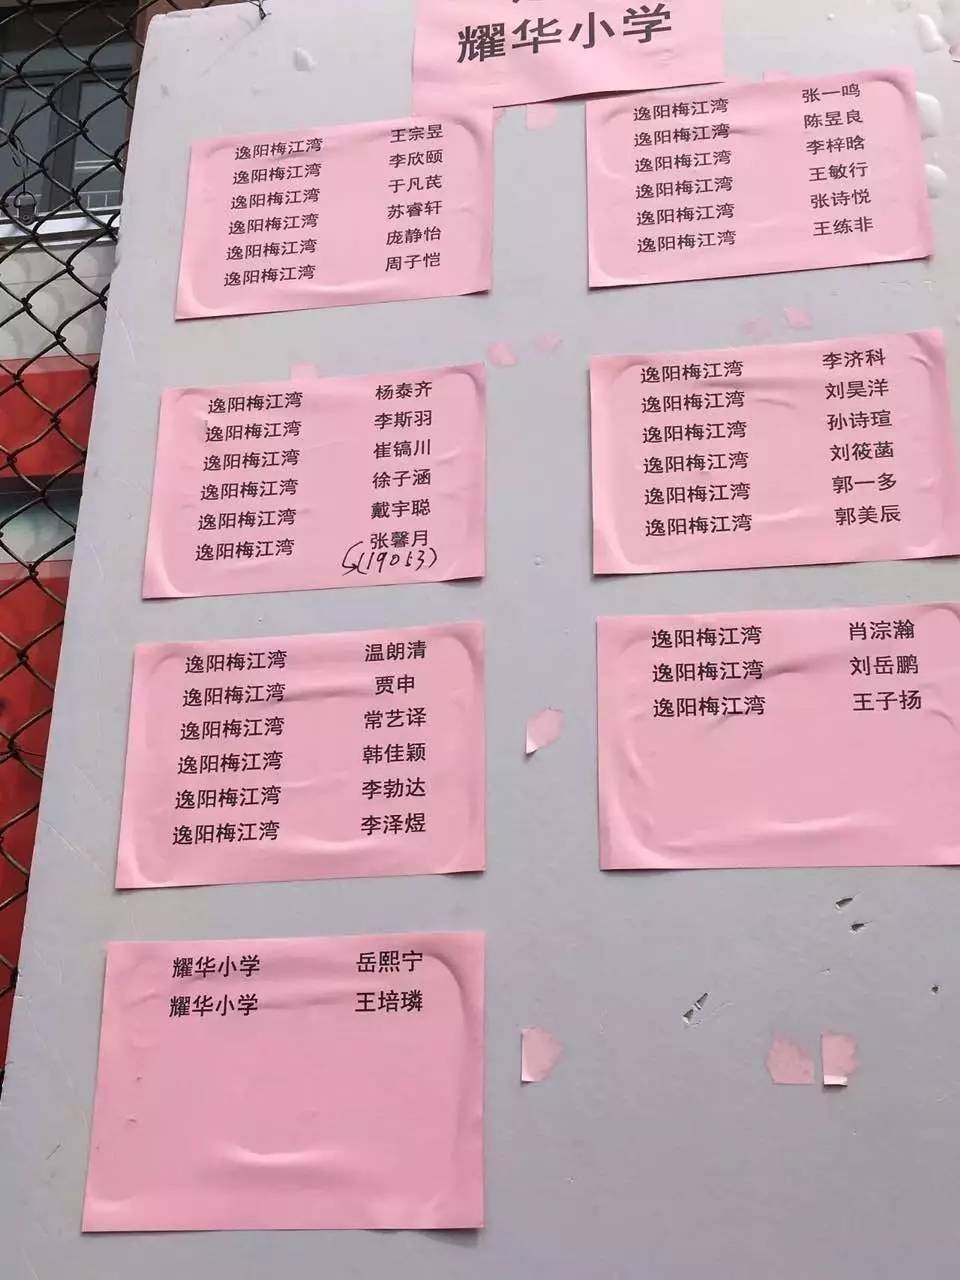 耀华小学
逸阳梅江湾 王宗昱
逸阳梅江湾 李欣颐
逸阳梅江湾 于凡芪
逸阳梅江湾 苏睿轩
逸阳梅江湾 庞静怡
逸阳梅江湾 周子恺
逸阳梅江湾 张一鸣
逸阳梅江湾 陈昱良
逸阳梅江湾 李梓晗
逸阳梅江湾 王敏行
逸阳梅江湾 张诗悦
逸阳梅江湾 王练非
逸阳梅江湾 杨泰齐
逸阳梅江湾 李斯羽
逸阳梅江湾 崔镐川
逸阳梅江湾 徐子涵
逸阳梅江湾 戴宇聪
逸阳梅江湾 张馨月
(19053)
逸阳梅江湾 李济科
逸阳梅江湾 刘昊洋
逸阳梅江湾 孙诗瑄
逸阳梅江湾 刘筱菡
逸阳梅江湾 郭一多
逸阳梅江湾 郭美辰
逸阳梅江湾 温朗清
逸阳梅江湾 贾申
逸阳梅江湾 常艺译
逸阳梅江湾 韩佳颖
逸阳梅江湾 李勃达
逸阳梅江湾 李泽煜
逸阳梅江湾 肖淙瀚
逸阳梅江湾 刘岳鹏
逸阳梅江湾 王子扬
耀华小学 岳熙宁
耀华小学 王培璘